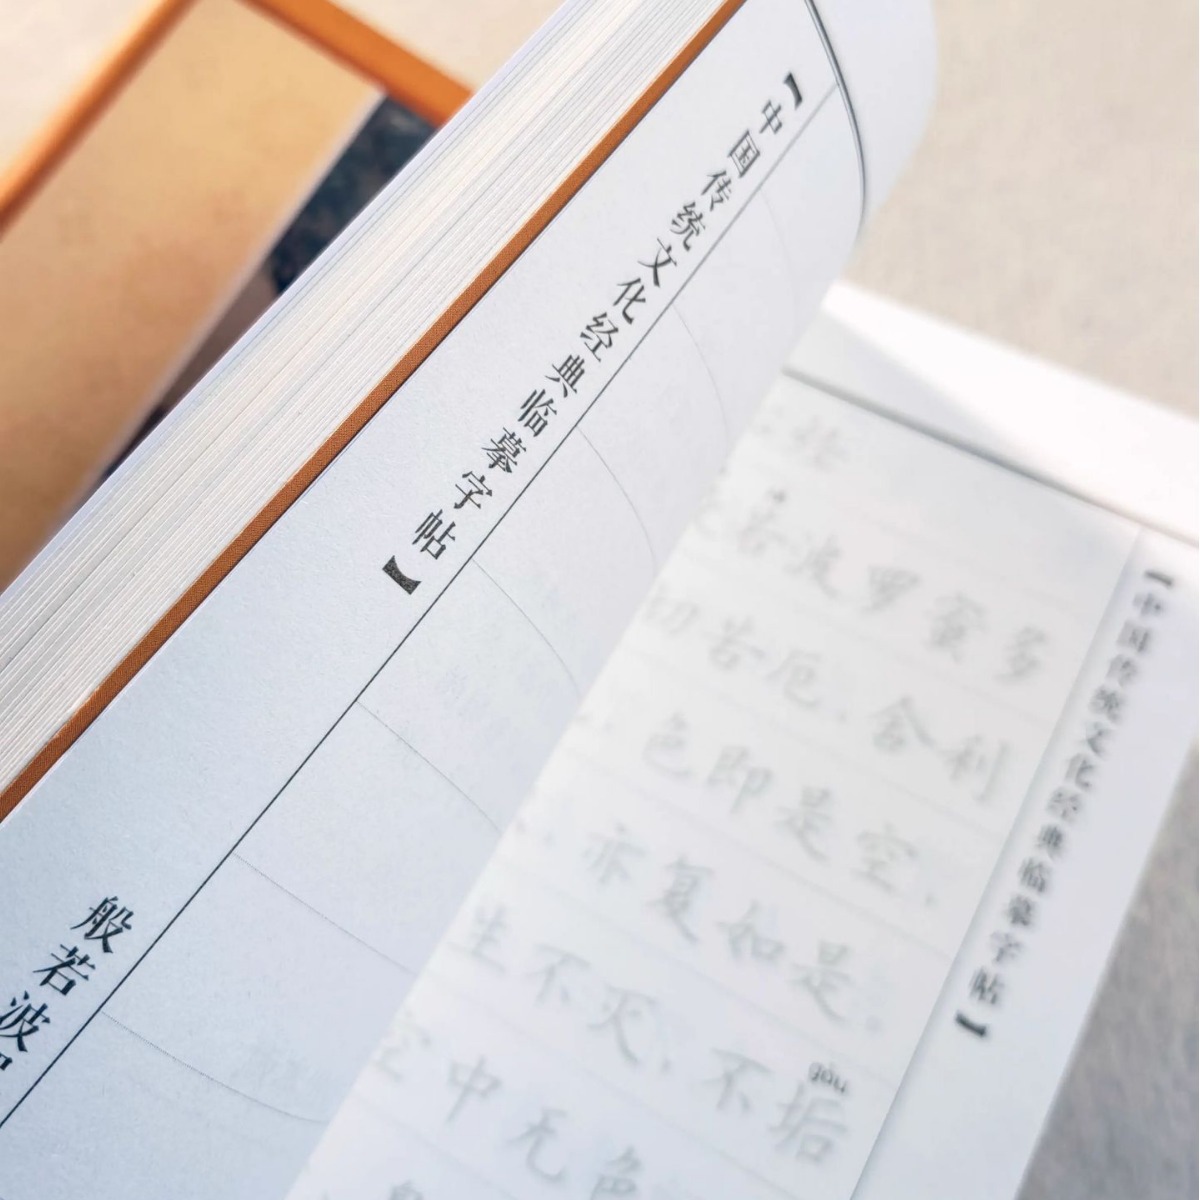 【中国传统文化经典临摹字帖】
般若波
若波罗蜜多
切苦厄，舍利
色即是空，
亦复如是。
生不灭，不垢
gòu
空中无色
【中国传统文化经典临摹字帖】